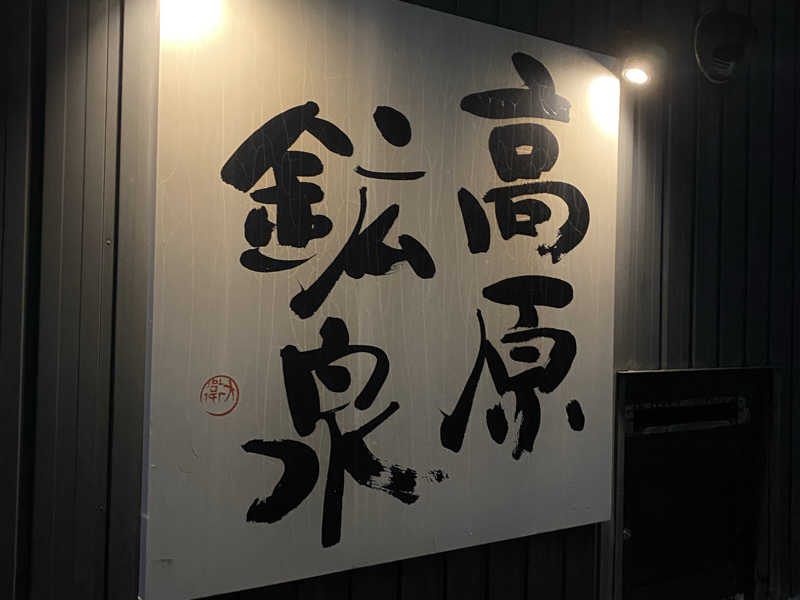 高原
鉱泉